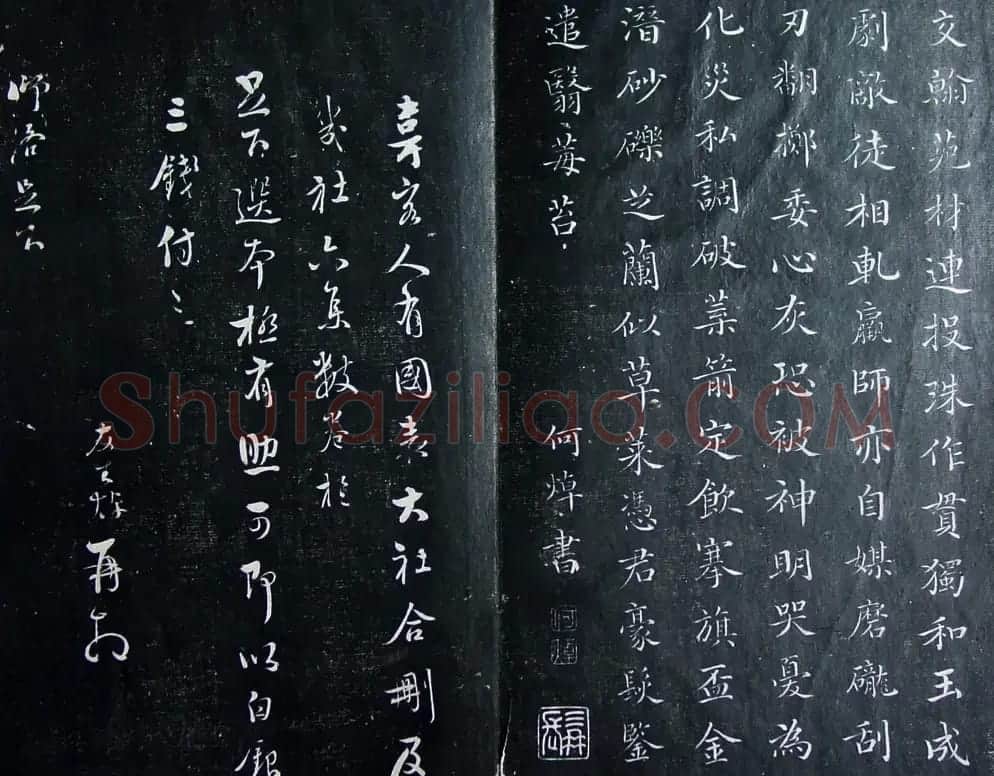 文翰苑材連投珠作貫獨和玉成
劇敵徒相軋羸師亦自媒磨礲刮
刃翻擲委心灰恐被神明哭憂為
化災私調破葉箭定飲搴旗盃金
潛砂礫芝蘭似草萊憑君豪髮鑒
遣翳莓苔
何焯書
客人有國表大社合刪及
幾社六集數卷於
足下選本極有助可即以白銀
三錢付之
友云焯再
師洛足下
Shufaziliao.COM